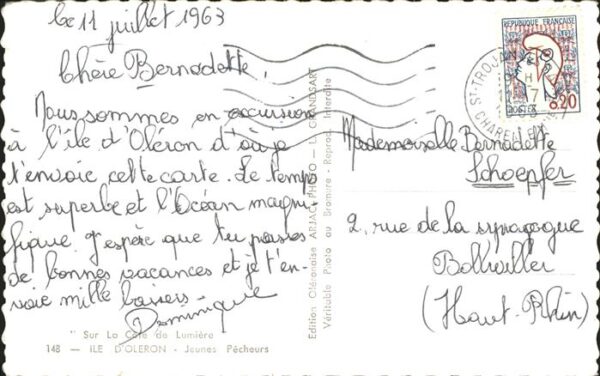 le 11 juillet 1963
Chère Bernadette,
Nous sommes en excursion
à l'île d'Oléron d'où je
t'envoie cette carte. Le temps
est superbe et l'Océan magni-
fique. J'espère que tu passes
de bonnes vacances et je t'en-
voie mille baisers.
Dominique
Sur La Côte de Lumière
148 - ILE D'OLERON - Jeunes Pêcheurs
Edition Oléronaise ARJAC-PHOTO - LE GRANDSART
Véritable Photo au Bromure - Reprod. Interdite
REPUBLIQUE FRANÇAISE
POSTES 0,20
ST-TROJAN
CHARENTE
Mademoiselle Bernadette
Schoepfer
2, rue de la synagogue
Bollwiller
(Haut-Rhin)